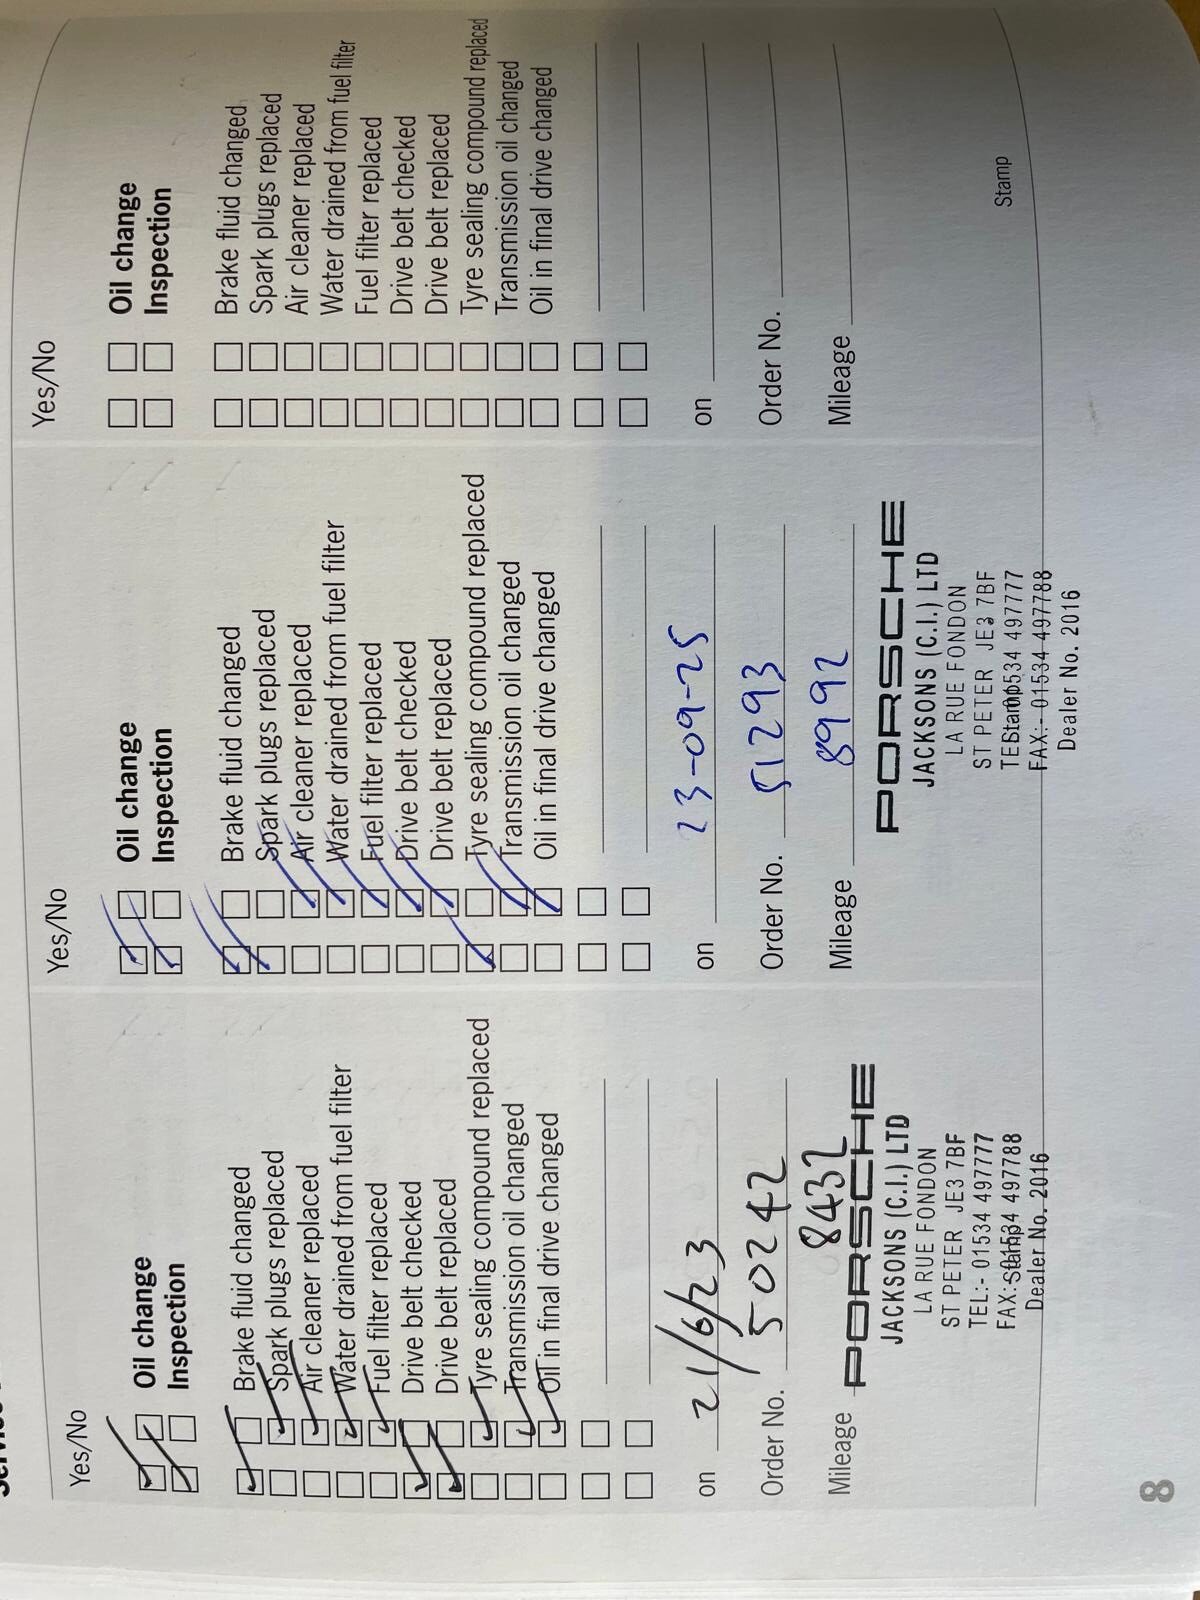 Yes/No
Oil change
Inspection
Brake fluid changed
Spark plugs replaced
Air cleaner replaced
Water drained from fuel filter
Fuel filter replaced
Drive belt checked
Drive belt replaced
Tyre sealing compound replaced
Transmission oil changed
Oil in final drive changed
on 21/6/23
Order No. 50242
Mileage 8432
PORSCHE
JACKSONS (C.I.) LTD
LA RUE FONDON
ST PETER JE3 7BF
TEL:- 01534 497777
FAX:- 01534 497788
Stamp
Dealer No. 2016
Yes/No
Oil change
Inspection
Brake fluid changed
Spark plugs replaced
Air cleaner replaced
Water drained from fuel filter
Fuel filter replaced
Drive belt checked
Drive belt replaced
Tyre sealing compound replaced
Transmission oil changed
Oil in final drive changed
on 23-09-25
Order No. 51293
Mileage 8992
PORSCHE
JACKSONS (C.I.) LTD
LA RUE FONDON
ST PETER JE3 7BF
TEL:- 01534 497777
Stamp
FAX:- 01534 497788
Dealer No. 2016
Yes/No
Oil change
Inspection
Brake fluid changed
Spark plugs replaced
Air cleaner replaced
Water drained from fuel filter
Fuel filter replaced
Drive belt checked
Drive belt replaced
Tyre sealing compound replaced
Transmission oil changed
Oil in final drive changed
on
Order No.
Mileage
Stamp
8